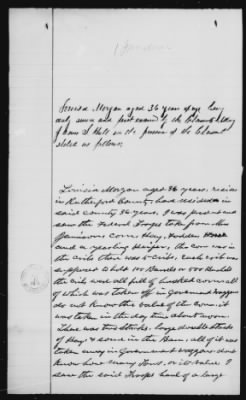 Louisa Morgan aged 36 years of age being
duly sworn and first examd by the Claimants Atty
in the presence of the Claimant
states as follows:
Louisia Morgan aged 36 years, reside
in Rutherford County, have resided in
said county 36 years. I was present and
saw the Federal Troops take from Mrs
corn, Hay, Fodder
and a yearling Heifer, the corn was in
the cribs there was 5 cribs, each crib was
supposed to hold 100 Barrels or 500 Bushels
the crib was all full of husked corn all
of which was taken off in Government waggons
do not know the value of the corn it
was taken in the day time about noon.
There was two stacks, large double stacks
of Hay & some in the Barn, all of it was
taken away in Government waggons dont
know how many Tons, or its value. I
saw the said Troops haul of a large